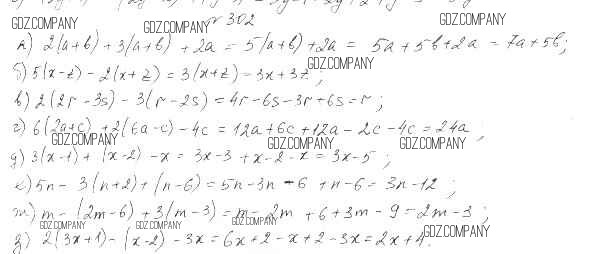 № 302
а) 2(a+b) + 3(a+b) + 2a = 5(a+b) + 2a = 5a + 5b + 2a = 7a + 5b;
б) 5(x-z) - 2(x+z) = 3(x+z) - 3x + 3z;
в) 2(2r - 3s) - 3(r - 2s) = 4r - 6s - 3r + 6s = r;
г) 6(2a+c) + 2(6a-c) - 4c = 12a + 6c + 12a - 2c - 4c = 24a;
д) 3(x-1) + (x-2) - x = 3x - 3 + x - 2 - x = 3x - 5;
е) 5n - 3(n+2) + (n-6) = 5n - 3n - 6 + n - 6 = 3n - 12;
ж) m - (2m-6) + 3(m-3) = m - 2m + 6 + 3m - 9 = 2m - 3;
з) 2(3x+1) - (x-2) - 3x = 6x + 2 - x + 2 - 3x = 2x + 4.
GDZ.COMPANY
GDZ.COMPANY
GDZ.COMPANY
GDZ.COMPANY
GDZ.COMPANY
GDZ.COMPANY
GDZ.COMPANY
GDZ.COMPANY
GDZ.COMPANY
GDZ.COMPANY
GDZ.COMPANY